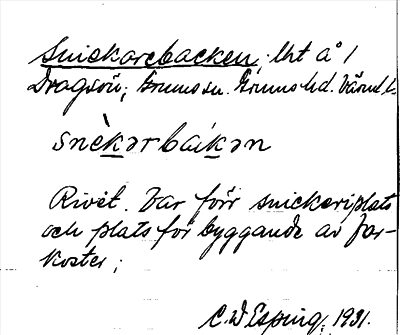 Snickarebacken; lht å 1
Dragsön; Grums sn. Grums hd. Värml.
snèkərbàkən
Rivet. Var förr snickeriplats
och plats för byggande av far-
koster;
C. W. Esping, 1931.